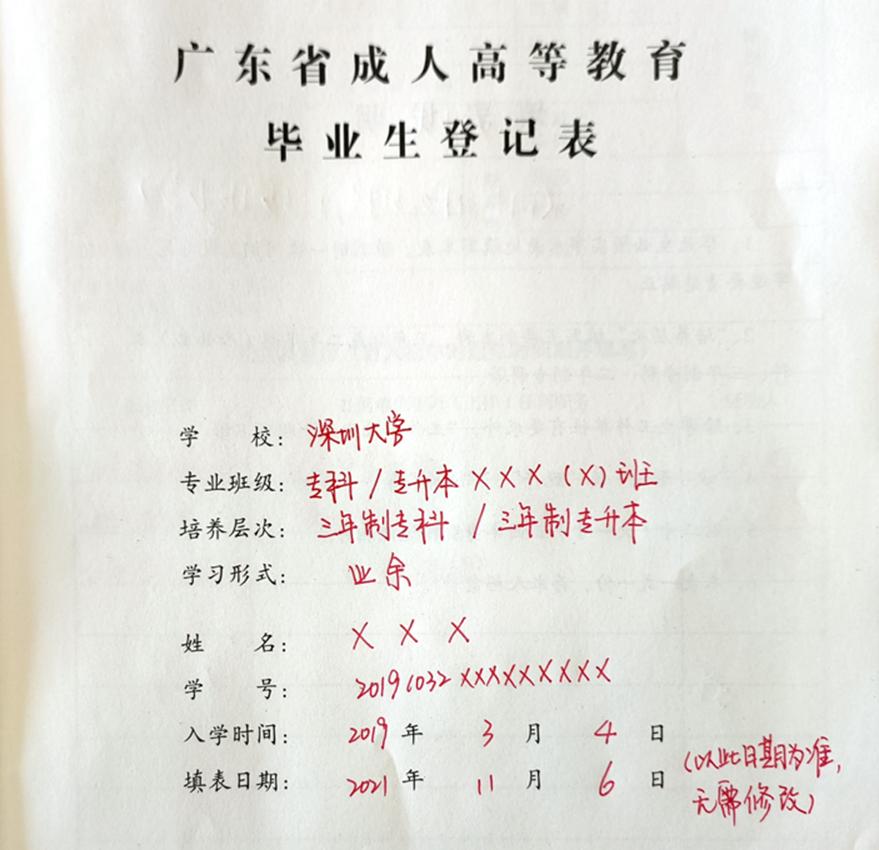 广东省成人高等教育
毕业生登记表
学 校：深圳大学
专业班级：专科/专升本XXX(X)班
培养层次：三年制专科/三年制专升本
学习形式：业余
姓 名：XXX
学 号：20191032XXXXXXXXX
入学时间：2019年3月4日
填表日期：2021年11月6日
(以此日期为准,
无需修改)